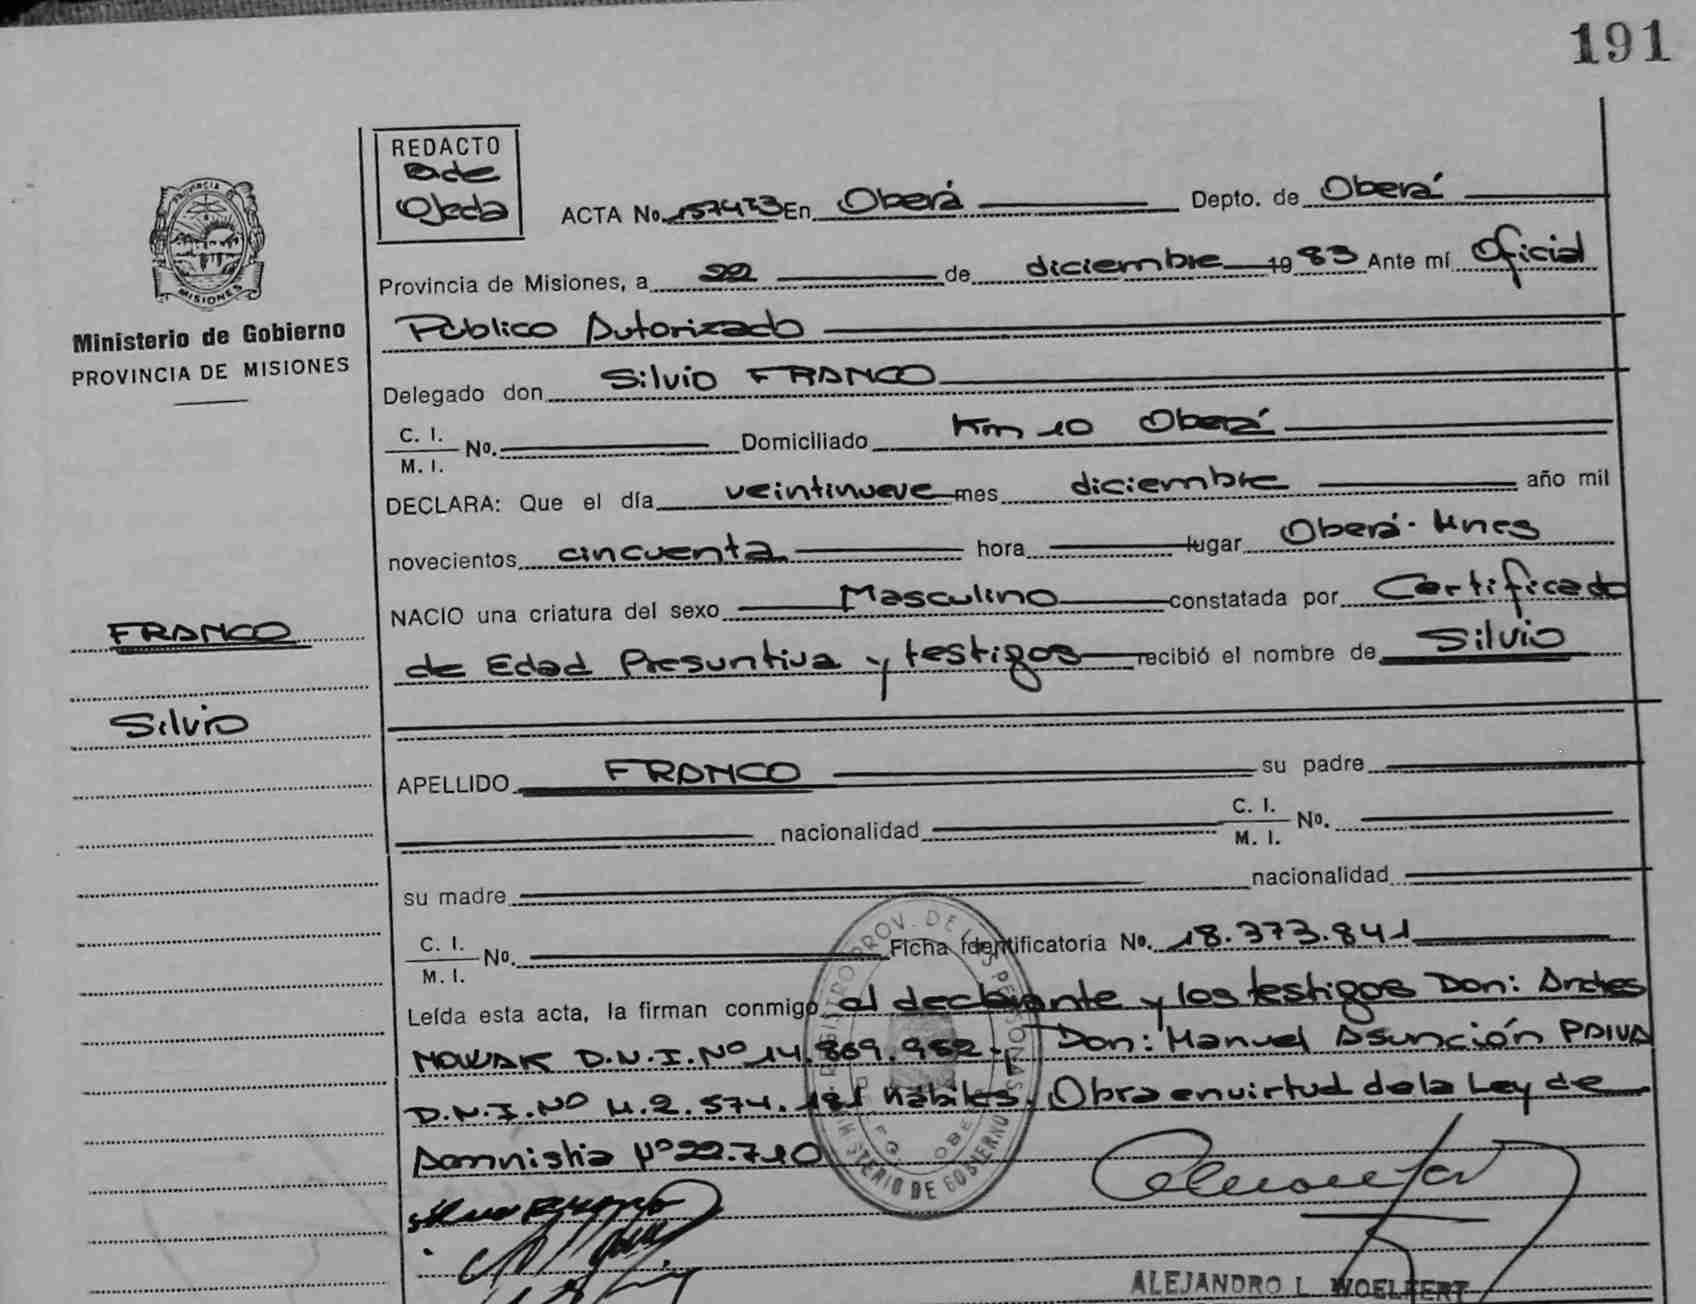 191
REDACTO
Ojeda
ACTA No. 157473 En Oberá Depto. de Oberá
Provincia de Misiones, a 22 de diciembre 1983 Ante mí Oficial
Público Autorizado
Ministerio de Gobierno
PROVINCIA DE MISIONES
Delegado don Silvio FRANCO
C. I.
M. I. No. Domiciliado Km 10 Oberá
DECLARA: Que el día veintinueve mes diciembre año mil
novecientos cincuenta hora lugar Oberá - Mnes
NACIO una criatura del sexo Masculino constatada por Certificado
FRANCO
de Edad Presuntiva y testigos recibió el nombre de Silvio
Silvio
APELLIDO FRANCO su padre
nacionalidad C. I.
M. I. No.
su madre nacionalidad
C. I.
M. I. No. Ficha identificatoria No. 18.373.841
Leída esta acta, la firman conmigo el declarante y los testigos Don: Andres
NOWAK D.N.I. Nº 14.869.982 y Don: Manuel Asunción PAIVA
D.N.I. Nº M.2.574.181 hábiles. Obra en virtud de la Ley de
Amnistia Nº 22.710
REGISTRO PROV. DE LAS PERSONAS
MINISTERIO DE GOBIERNO
PROVINCIA
MISIONES
ALEJANDRO L. WOELFERT